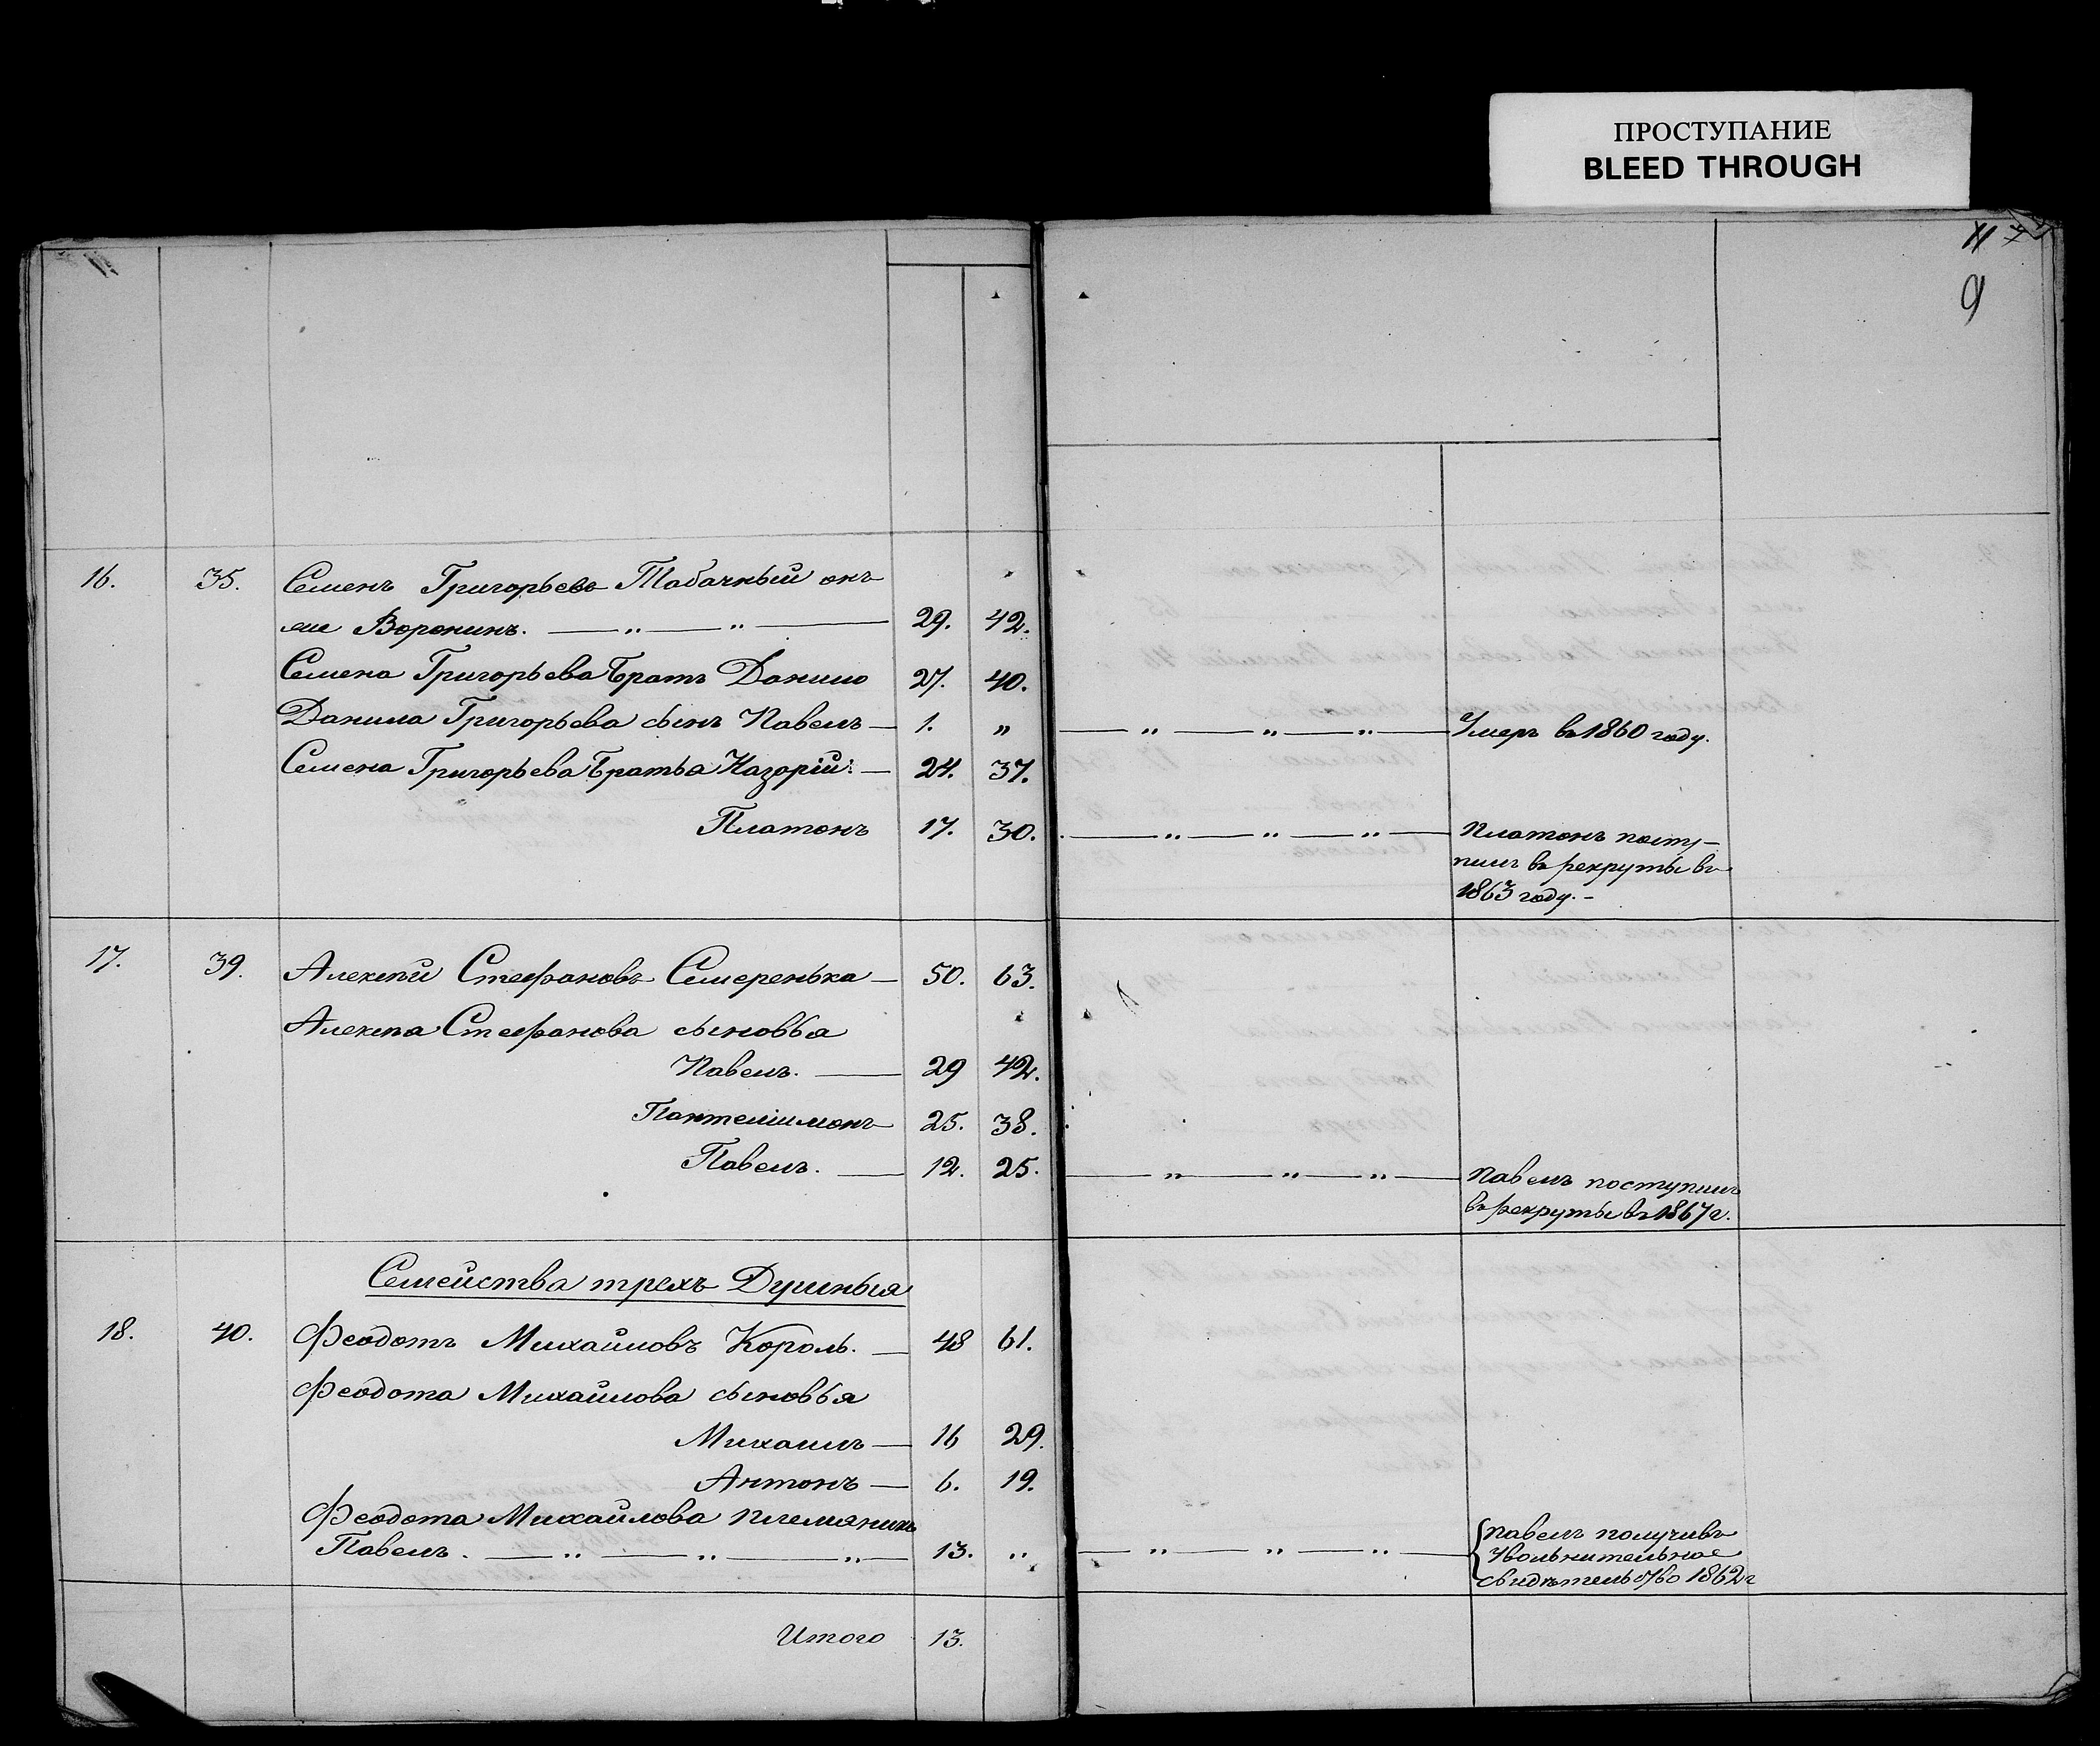 ПРОСТУПАНИЕ
BLEED THROUGH
11 7
9
16. 35. Семенъ Григорьевъ Табачный онъ
же Воронинъ. — „ — „ — 29. 42.
Семена Григорьева братъ Данило 27. 40.
Данила Григорьева сынъ Павелъ — 1. „ — „ — „ — „ — Умеръ въ 1860 году.
Семена Григорьева братья Назарій: — 24. 37.
Платонъ 17. 30. — „ — „ — „ — Платонъ посту-
пилъ въ рекруты въ
1863 году. -
17. 39. Алексѣй Стефановъ Смеренька — 50. 63.
Алексѣя Стефанова сыновья
Павелъ. — 29 42.
Пантелиимонъ 25. 38.
Павелъ. — 12. 25. — „ — „ — „ — Павелъ поступилъ
въ рекруты въ 1867 г.
Семейства трехъ Душныя
18. 40. Феодотъ Михайловъ Король. — 48 61.
Феодота Михайлова сыновья
Михаилъ — 16 29.
Антонъ — 6. 19.
Феодота Михайлова племяникъ
Павелъ. — „ — „ — „ — 13. „ — „ — „ — „ — Павелъ получивъ
Увольнительное
свидѣтельство 1862 г
Итого 13.